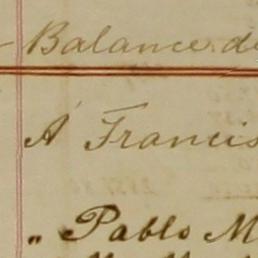 Balance de
A' Francis
„ Pablo M